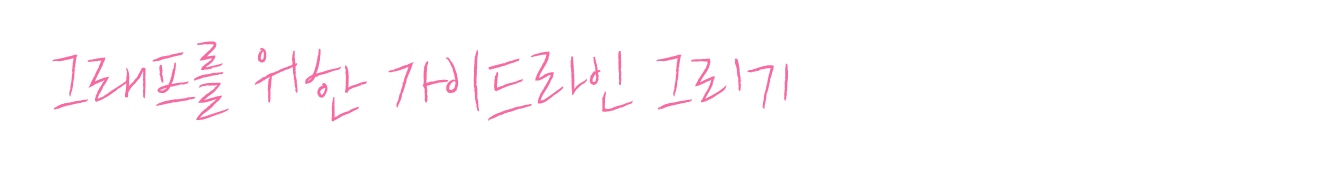 그래프를 위한 가이드라인 그리기